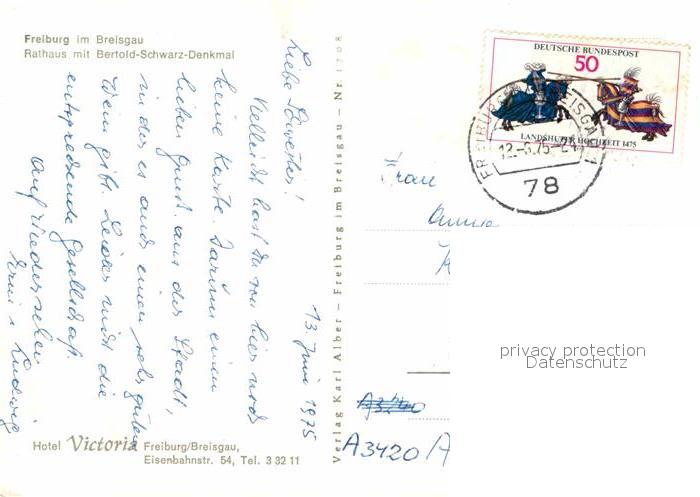 Freiburg im Breisgau
Rathaus mit Bertold-Schwarz-Denkmal
13. Juni 1975
Liebe Schwester!
Vielleicht hast du von hier noch
keine Karte. Darum einen
lieben Gruß aus der Stadt,
in der es auch einen sehr guten
Wein gibt. Leider nicht die
entsprechende Gesellschaft.
Auf Wiedersehen
Ludwig
Hotel Victoria Freiburg/Breisgau,
Eisenbahnstr. 54, Tel. 3 32 11
Verlag Karl Alber – Freiburg im Breisgau – Nr. 1708
DEUTSCHE BUNDESPOST
50
LANDSHUTER HOCHZEIT 1475
FREIBURG BREISGAU
12.-6.75-21
78
Frau
privacy protection
Datenschutz
A3420/A